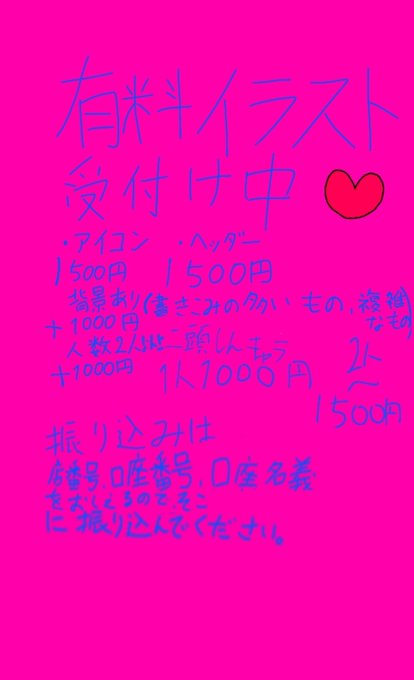 有料イラスト
受付け中
・アイコン ・ヘッダー
1500円 1500円
背景あり(書きこみの多い もの、複雑なもの)
+1000円
人数2人 二頭しんキャラ
+1000円 1人1000円
2人〜
1500円
振り込みは
店番号、口座番号、口座名義
をおしえるので、そこ
に振り込んでください。